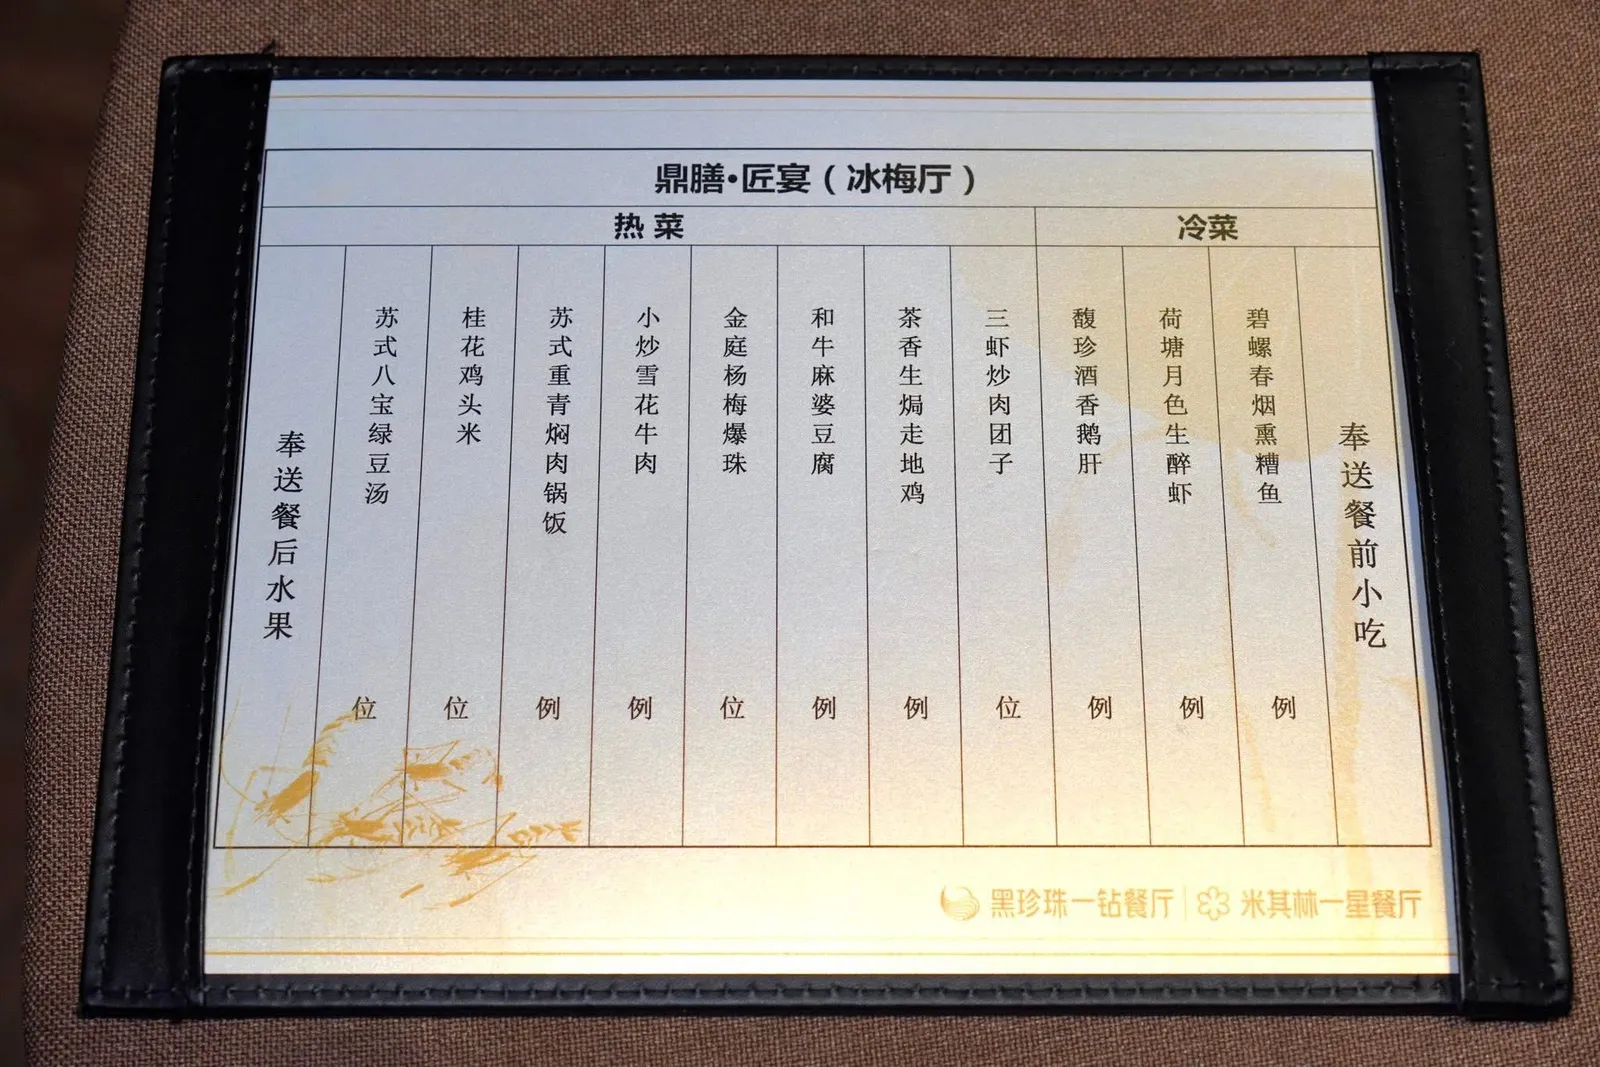 鼎膳·匠宴（冰梅厅）
冷菜
热菜
奉送餐前小吃
碧螺春烟熏糟鱼 例
荷塘月色生醉虾 例
馥珍酒香鹅肝 例
三虾炒肉团子 位
茶香生焗走地鸡 例
和牛麻婆豆腐 例
金庭杨梅爆珠 位
小炒雪花牛肉 例
苏式重青焖肉锅饭 例
桂花鸡头米 位
苏式八宝绿豆汤 位
奉送餐后水果
黑珍珠一钻餐厅 | 米其林一星餐厅